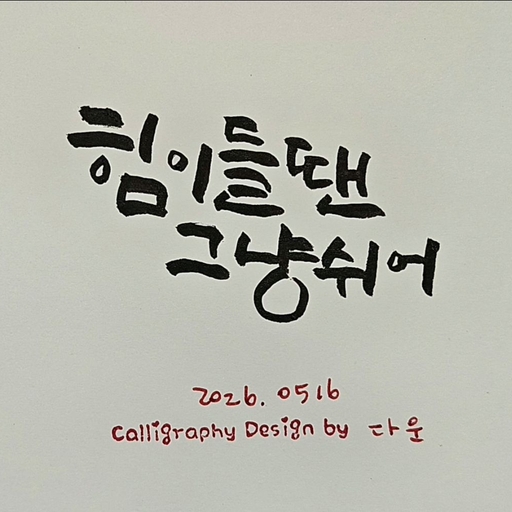 힘이들땐
그냥쉬어
2026. 0516
Calligraphy Design by 다운